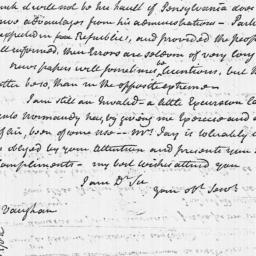 would not be her hault if Pensylvania does
new advantages from his administration – Parl
expedient in free Republic's, and provided the peop
well informed, their Errors are seldom of very long
news papers will sometimes be licentious, but th
better so so, than in the opposite extreme –
I am still an Invalid – a little Excursion la
into Normandy has, by giving me Exercise and
of air, been of some use – Mrs. Jay is tolerably
obliged by your attention and presents you
compliments – my best wishes attend you
I am Dr. Sir
your obt. Servt.
Vaughan